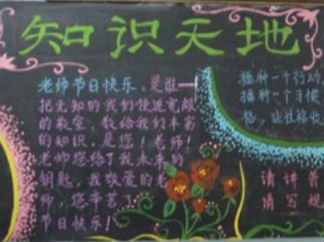 知识天地
老师节日快乐。是谁—
把无知的我们领进宽敞
的教室，教给我们丰富
的知识。是您！老师！
老师您给了我永束的
钥匙，我敬爱的老
师，您辛苦
节日快乐！
播种一个行动
播种一个习惯
格，让性格收
请讲普
请写规